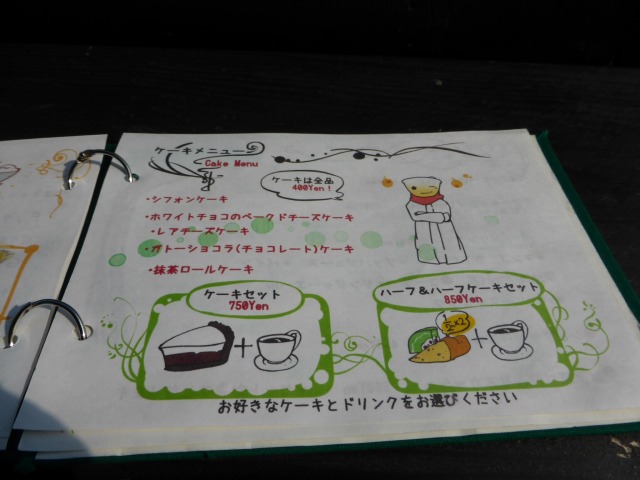 ケーキメニュー
Cake Menu
ケーキは全品
400Yen!
・シフォンケーキ
・ホワイトチョコのベークドチーズケーキ
・レアチーズケーキ
・ガトーショコラ(チョコレート)ケーキ
・抹茶ロールケーキ
ケーキセット
750Yen
ハーフ&ハーフケーキセット
850Yen
+
+
お好きなケーキとドリンクをお選びください